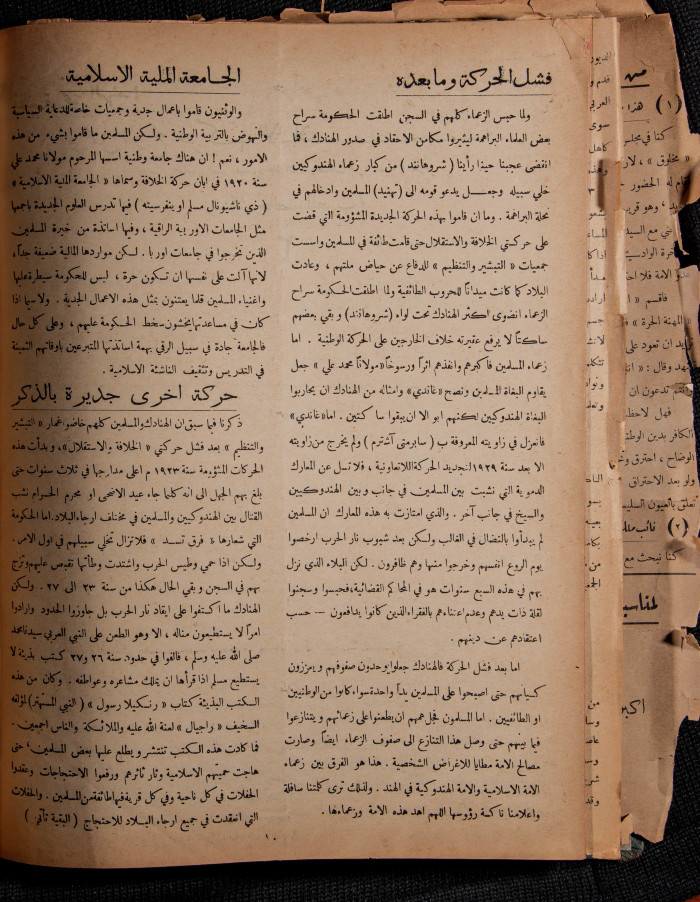 فشل الحركة وما بعده
ولما حبس الزعماء كلهم في السجن اطلقت الحكومة سراح
بعض العلماء البراهمة ليثيروا مكامن الاحقاد في صدور الهنادك ، فما
انقضى عجبنا حينا رأينا ( شروهانند ) من كبار زعماء الهندوكيين
خلي سبيله وجعل يدعو قومه الى ( تهنيد ) المسلمين وادخالهم في
نحلة البراهمة . وما ان قاموا بهذه الحركة الجديدة المشؤومة التي قضت
على حركتي الخلافة والاستقلال حتى قامت طائفة في المسلمين واسست
جمعيات « التبشير والتنظيم » للدفاع عن حياض ملتهم ، وعادت
البلاد كما كانت ميداناً للحروب الطائفية ولما اطلقت الحكومة سراح
الزعماء انضوى اكثر الهنادك تحت لواء ( شروهانند ) وبقي بعضهم
ساكتاً لا يرفع عقيرته خلاف الخارجين على الحركة الوطنية . اما
زعماء المسلمين فأكبرهم وانفذهم اثراً ورسوخاً « مولانا محمد علي » جعل
يقاوم البغاة المسلمين ونصح « غاندي » وامثاله من الهنادك ان يحاربوا
البغاة الهندوكيين لكنهم ابو الا ان يبقوا ساكتين . اما « غاندي »
فانعزل في زاويته المعروفة ب ( سابرمتى آشترم ) ولم يخرج من زاويته
الا بعد سنة ١٩٢٩ لتجديد الحركة اللاتعاونية ، فلا تسل عن المعارك
الدموية التي نشبت بين المسلمين في جانب وبين الهندوكيين
والسيخ في جانب آخر . والذي امتازت به هذه المعارك ان المسلمين
لم يبدأوا بالنضال في الغالب ولكن بعد شبوب نار الحرب ارخصوا
يوم الروع انفسهم وخرجوا منها وهم ظافرون . لكن البلاء الذي نزل
بهم في هذه السبع سنوات هو في المحاكم القضائية ، فحبسوا وسجنوا
لقلة ذات يدهم وعدم اعتناءهم بالفقراء الذين كانوا يدافعون — حسب
اعتقادهم عن دينهم .
اما بعد فشل الحركة فالهنادك جعلوا يوحدون صفوفهم ويعززون
كسياتهم حتى اصبحوا على المسلمين يداً واحدة سواء كانوا من الوطنيين
او الطائفيين . اما المسلمون فجل همهم ان يطعنوا على زعمائهم ويتنازعوا
فيما بينهم حتى وصل هذا التنازع الى صفوف الزعماء ايضاً وصارت
مصالح الامة مطايا للاغراض الشخصية . هذا هو الفرق بين زعماء
الامة الاسلامية والامة الهندوكية في الهند . ولذلك ترى كلمتنا سافلة
واعلامنا ناكسة رؤوسها اللهم اهد هذه الامة وزعماءها .
الجامعة الملية الاسلامية
والوثنيون قاموا باعمال جدية وجمعيات خاصة للدعاية السياسية
والنهوض بالتربية الوطنية . ولكن المسلمين ما قاموا بشيء من هذه
الامور ، نعم ! ان هناك جامعة وطنية اسسها المرحوم مولانا محمد علي
سنة ١٩٢٠ في ابان حركة الخلافة وسماها « الجامعة الملية الاسلامية »
( ذي ناشيونال مسلم او ينفرسيته ) فيها تدرس العلوم الجديدة باجمعها
مثل الجامعات الاوربية الراقية ، وفيها اساتذة من خيرة المسلمين
الذين تخرجوا في جامعات اوربا . لكن مواردها المالية ضعيفة جداً ،
لانها آلت على نفسها ان تكون حرة ، ليس للحكومة سيطرة عليها
واغنياء المسلمين قلما يعتنون بمثل هذه الاعمال الجدية . ولا سيما اذا
كان في مساعدتها يخشون سخط الحكومة عليهم ، وعلى كل حال
فالجامعة جادة في سبيل الرقي بهمة اساتذتها المتبرعين باوقاتهم الثمينة
في التدريس وتثقيف الناشئة الاسلامية .
حركة أخرى جديرة بالذكر
ذكرنا فيما سبق ان الهنادك والمسلمين كلهم خاضو غمار « التبشير
والتنظيم » بعد فشل حركتي « الخلافة والاستقلال » ، وبدأت هذه
الحركات المشؤومة سنة ١٩٢٣ م اعلى مدارجها في ثلاث سنوات حتى
بلغ بهم الجهل الى انه كلما جاء عيد الاضحى او محرم الحرام نشب
القتال بين الهندوكيين والمسلمين في مختلف ارجاء البلاد . اما الحكومة
التي شعارها « فرق تسد » فلا تزال تخلي سبيلهم في اول الامر .
ولكن اذا حمي وطيس الحرب واشتدت وطأتها تقبض عليهم وتزج
بهم في السجن وبقي الحال هكذا من سنة ٢٣ الى ٢٧ . ولكن
الهنادك ما اكتفوا على ايقاد نار الحرب بل جاوزوا الحدود وارادوا
امراً لا يستطيعون مناله ، الا وهو الطعن على النبي العربي سيدنا محمد
صلى الله عليه وسلم ، فالفوا في حدود سنة ٢٦ و ٢٧ كتب بذيئة لا
يستطيع مسلم اذا قرأها ان يملك مشاعره وعواطفه . وكان من هذه
الكتب البذيئة كتاب « رنكيلا رسول » ( النبي المستهتر ) لمؤلفه
السخيف « راجپال » لعنة الله عليه والملائكة والناس اجمعين .
فما كادت هذه الكتب تنتشر ويطلع عليها بعض المسلمين ، حتى
هاجت حميتهم الاسلامية وثار ثائرهم ورفعوا الاحتجاجات وعقدوا
الحفلات في كل ناحية وفي كل قرية فيها طائفة من المسلمين . والحفلات
التي انعقدت في جميع ارجاء البلاد للاحتجاج ( البقية تأتي )